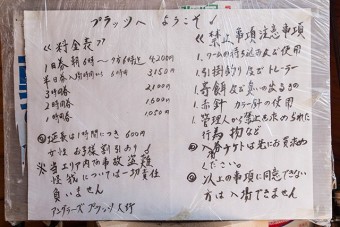 プラッツへ ようこそ♪
≪料金表≫
1日券 朝6時〜夕方6時迄 4200円
半日券 入場時間から 6時間 3150円
3時間券 2100円
2時間券 1600円
1時間券 1050円
◎延長は1時間につき 600円
女性 お子様 割引あり
※当エリア内で事故 盗難
怪我については一切責任
負いません
アングラーズ プラッツ 大野
≪禁止事項 注意事項
1. ワームの持ち込み及び使用
1. 引掛釣り及び トレーラー
1. 寄餌など 臭いが出るもの
1. 赤針 カラー針の使用
1. 管理人から禁止を求められた
行為 物など
◎入場チケットは先にお買求め
ください。
◎以上の事項に同意できない
方は入場できません